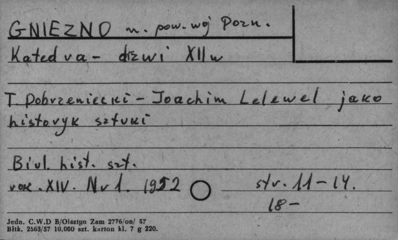 GNIEZNO m. pow. woj Pozn.
Katedra - drzwi XII w
T. Dobrzeniecki - Joachim Lelewel jako
historyk sztuki
Biul. hist. szt.
rok. XIV. Nr 1. 1952 str. 11-14.
18-
Jedn. C.W.D B/Olsztyn Zam 2776/on/ 57
Bltk. 2563/57 10.000 szt. karton kl. 7 g 220.